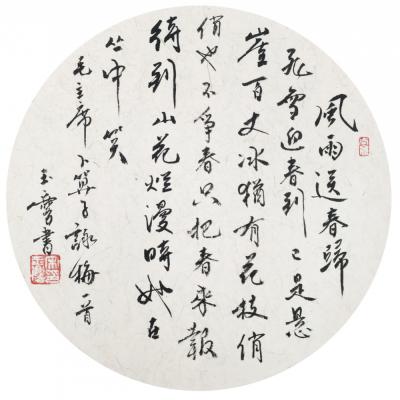 風雨送春歸
飛雪迎春到已是懸
崖百丈冰猶有花枝俏
俏也不爭春只把春來報
待到山花爛漫時她在
丛中笑
毛主席卜算子詠梅一首
书